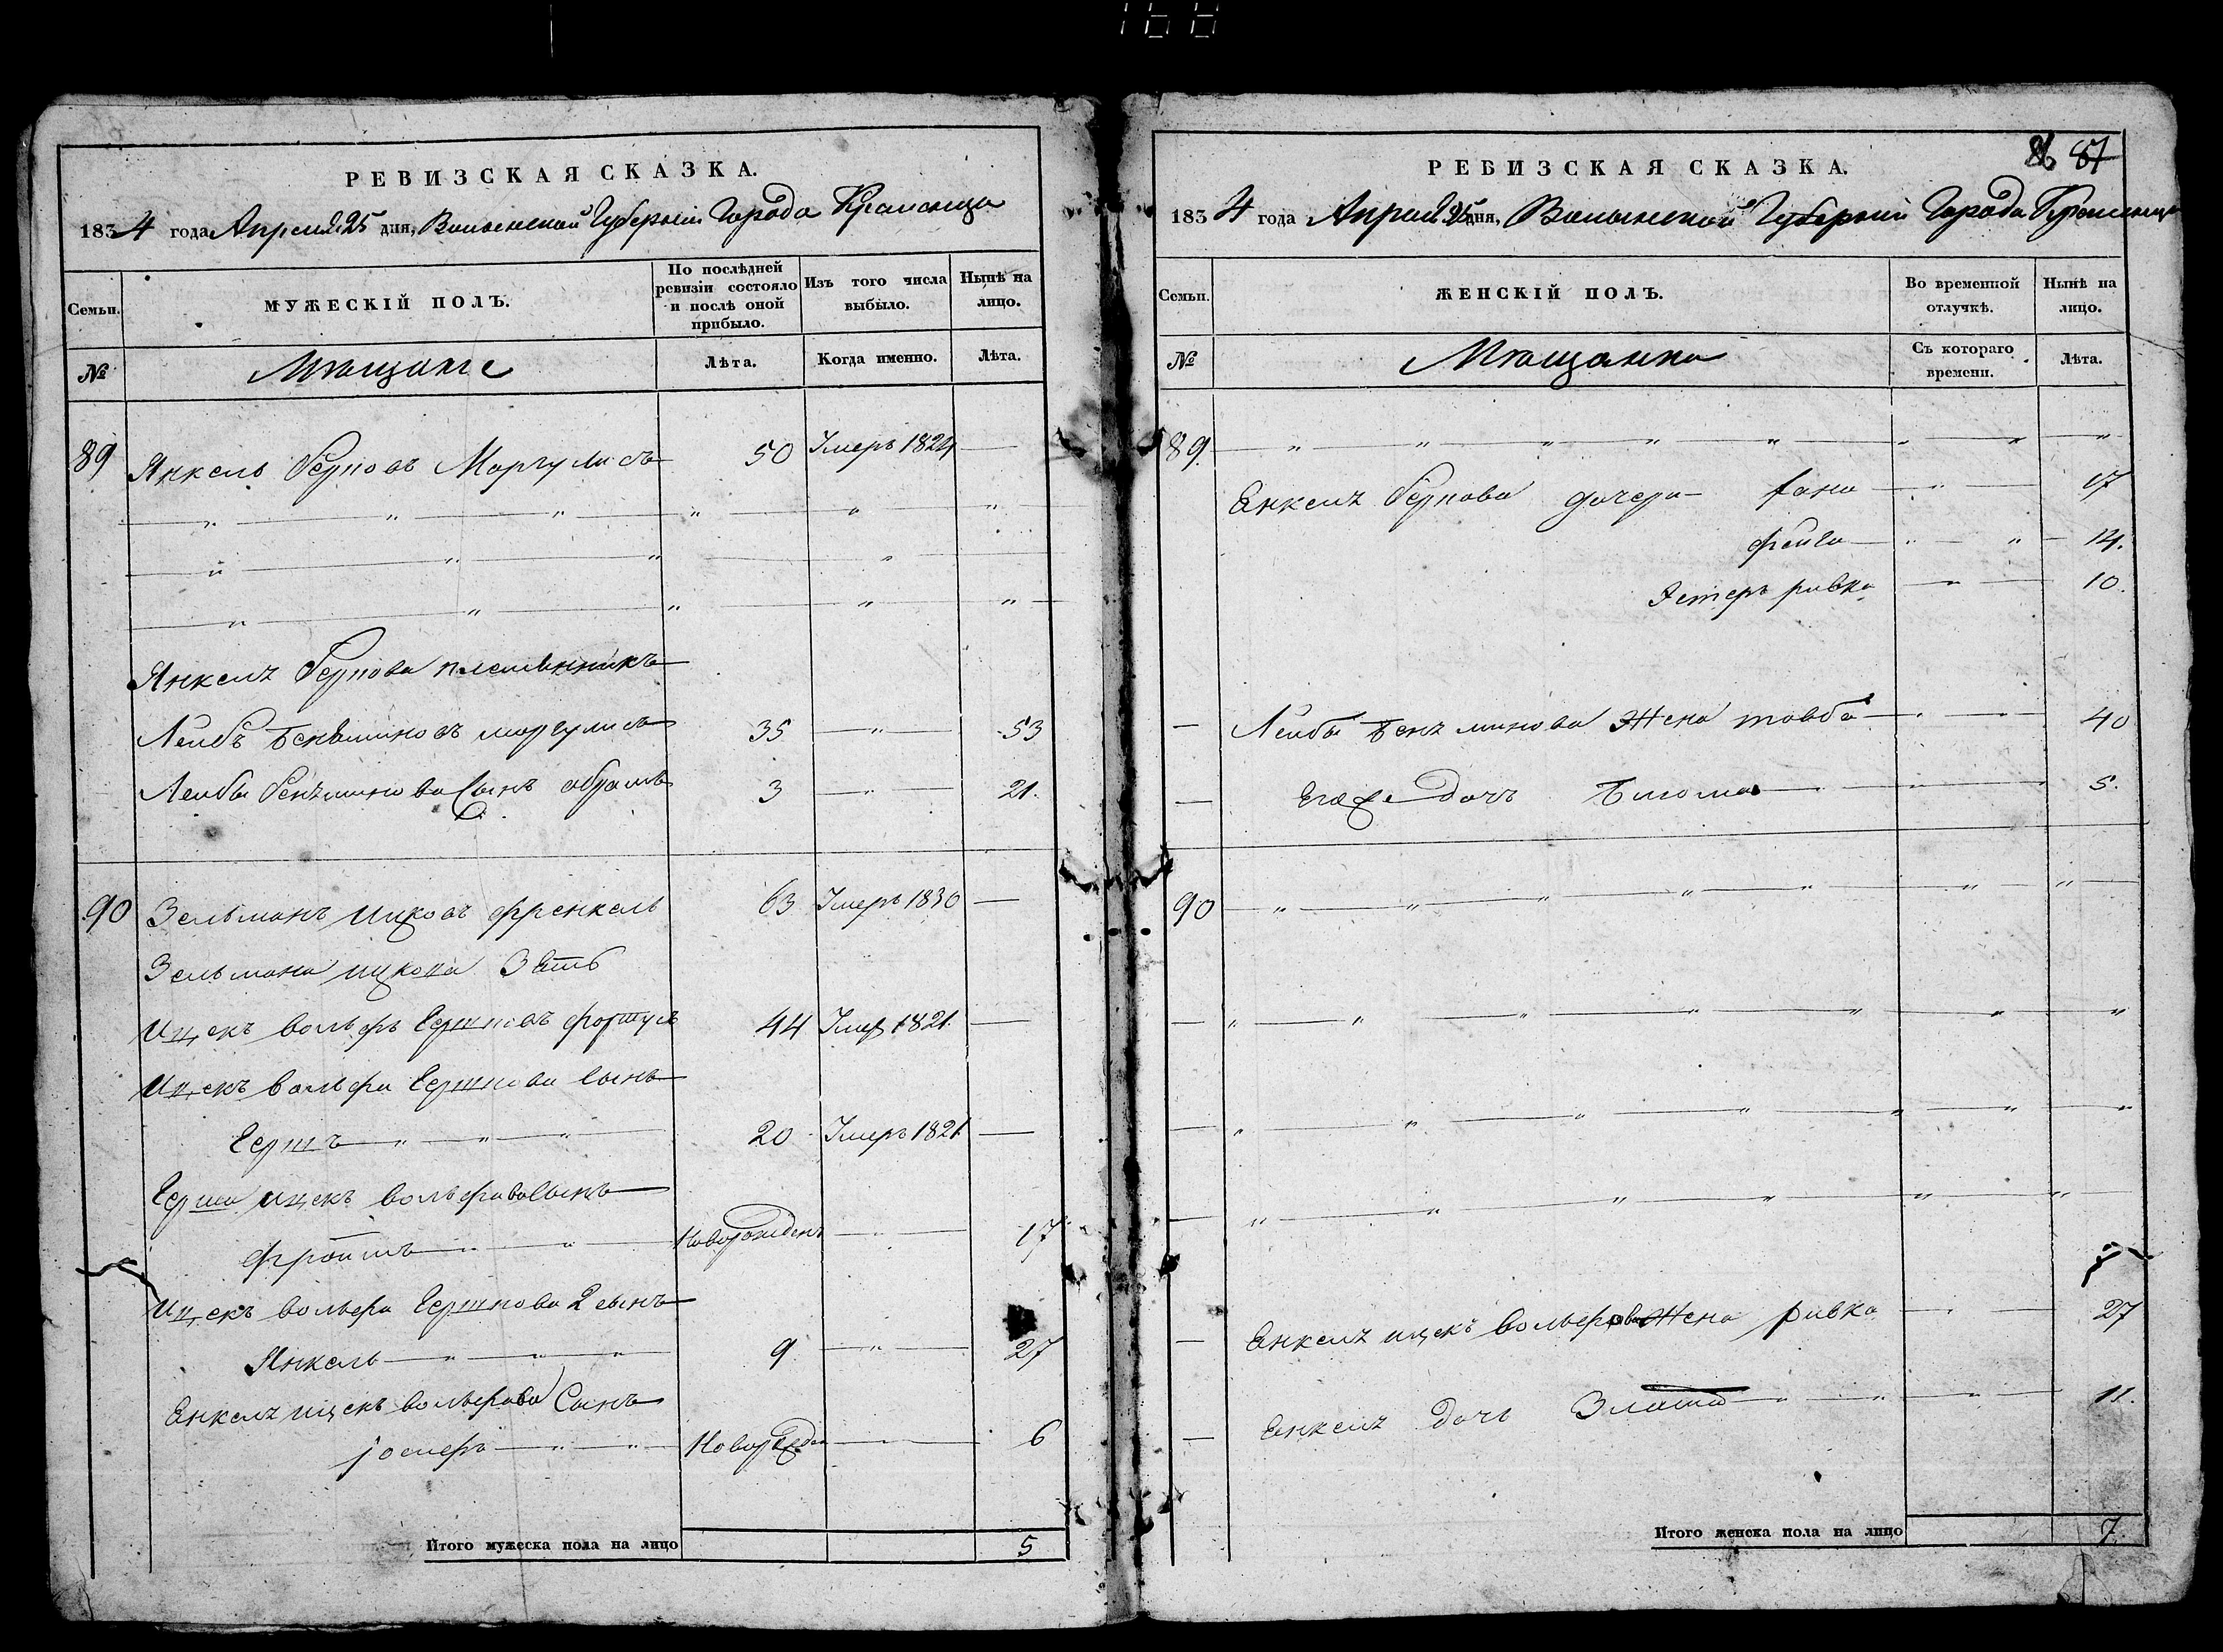 168
РЕВИЗСКАЯ СКАЗКА.
1834 года Апреля 25 дня, Волынской Губерніи Города Кременца
Семьи.
МУЖЕСКІЙ ПОЛЪ.
По послѣдней ревизіи состояло и послѣ оной прибыло.
Изъ того числа выбыло.
Нынѣ на лицо.
№
Мѣщане
Лѣта.
Когда именно.
Лѣта.
89 Янкель Берковъ Маргулисъ 50 Умеръ 1824 —
Янкеля Беркова племянникъ
Лейбъ Беньминовъ маргулисъ 35 — " — 53
Лейбы Беньминова Сынъ абрамъ 3 — " — 21.
90 Зельманъ ицковъ френкель 63 Умеръ 1830 —
Зельмана ицкова Зять
Ицекъ вольфъ Гершковъ 44 Умеръ 1821. —
Ицекъ вольфа Гершкова сынъ
Гершъ — " — " — " 20 Умеръ 1821 —
Герша ицекъ вольфова Сынъ
Фроимъ — " — " — Новорожденъ — 17
Ицекъ вольфа Гершкова 2 сынъ
Янкель — " — " — " 9 — " — 27
Енкеля ицекъ вольфова Сынъ
іосифъ — " — " — Новорожде — 6
Итого мужеска пола на лицо 5
86 87
РЕВИЗСКАЯ СКАЗКА.
1834 года Апреля 25 дня, Волынской Губерніи Города Кременца
Семьи.
ЖЕНСКІЙ ПОЛЪ.
Во временной отлучкѣ.
Нынѣ на лицо.
№
Мѣщанки
Съ котораго времени.
Лѣта.
89. — " — " — " — " — " — " — " — "
Енкеля Беркова дочери — хана — " — 17
фейга — " — " — 14.
Эстеръ ривка — " — 10.
— Лейбы Беньминова Жена товба — " — 40
— Его же дочь Блюма — " — 5.
90 — " — " — " — " — " — " — "
— Енкеля ицекъ вольфова Жена ривка — " — 27
— Енкеля дочь Злата — " — " — 11.
Итого женска пола на лицо 7.